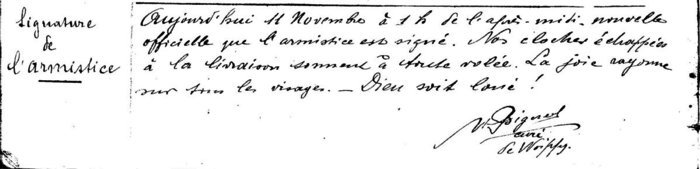 Signature
de
l'armistice
Aujourd'hui 11 Novembre à 1 h de l'après-midi - nouvelle
officielle que l'armistice est signé. Nos cloches échappées
à la livraison sonnent à toute volée. La joie rayonne
sur tous les visages. — Dieu soit loué !
curé
de Woippy.